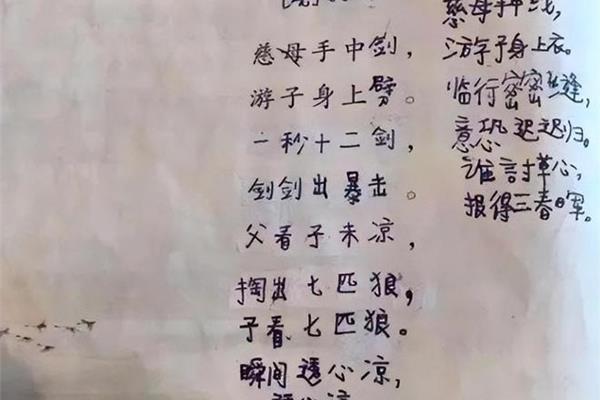 慈母手中剑，
游子身上劈。
一秒十二剑，
剑剑出暴击。
父看子未凉，
掏出七匹狼，
子看七匹狼。
瞬间透心凉，
透心凉
慈母手中线，
游子身上衣。
临行密密缝，
意恐迟迟归。
谁討草心，
报得三春晖。